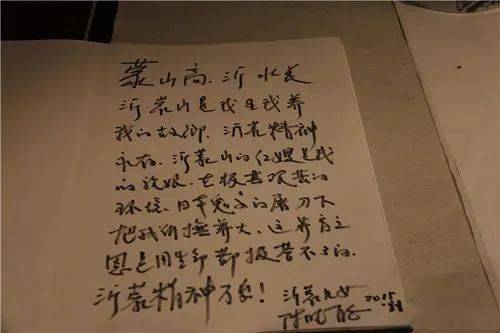 蒙山高、沂水长
沂蒙山是我生我养
我的故乡，沂蒙精神
永存。沂蒙山的红嫂是我
的娘，在极其艰苦的
环境，日本鬼子的屠刀下
把我们抚养大，这养育之
恩是用生命都报答不了的。
沂蒙精神万岁！
沂蒙儿女
2015